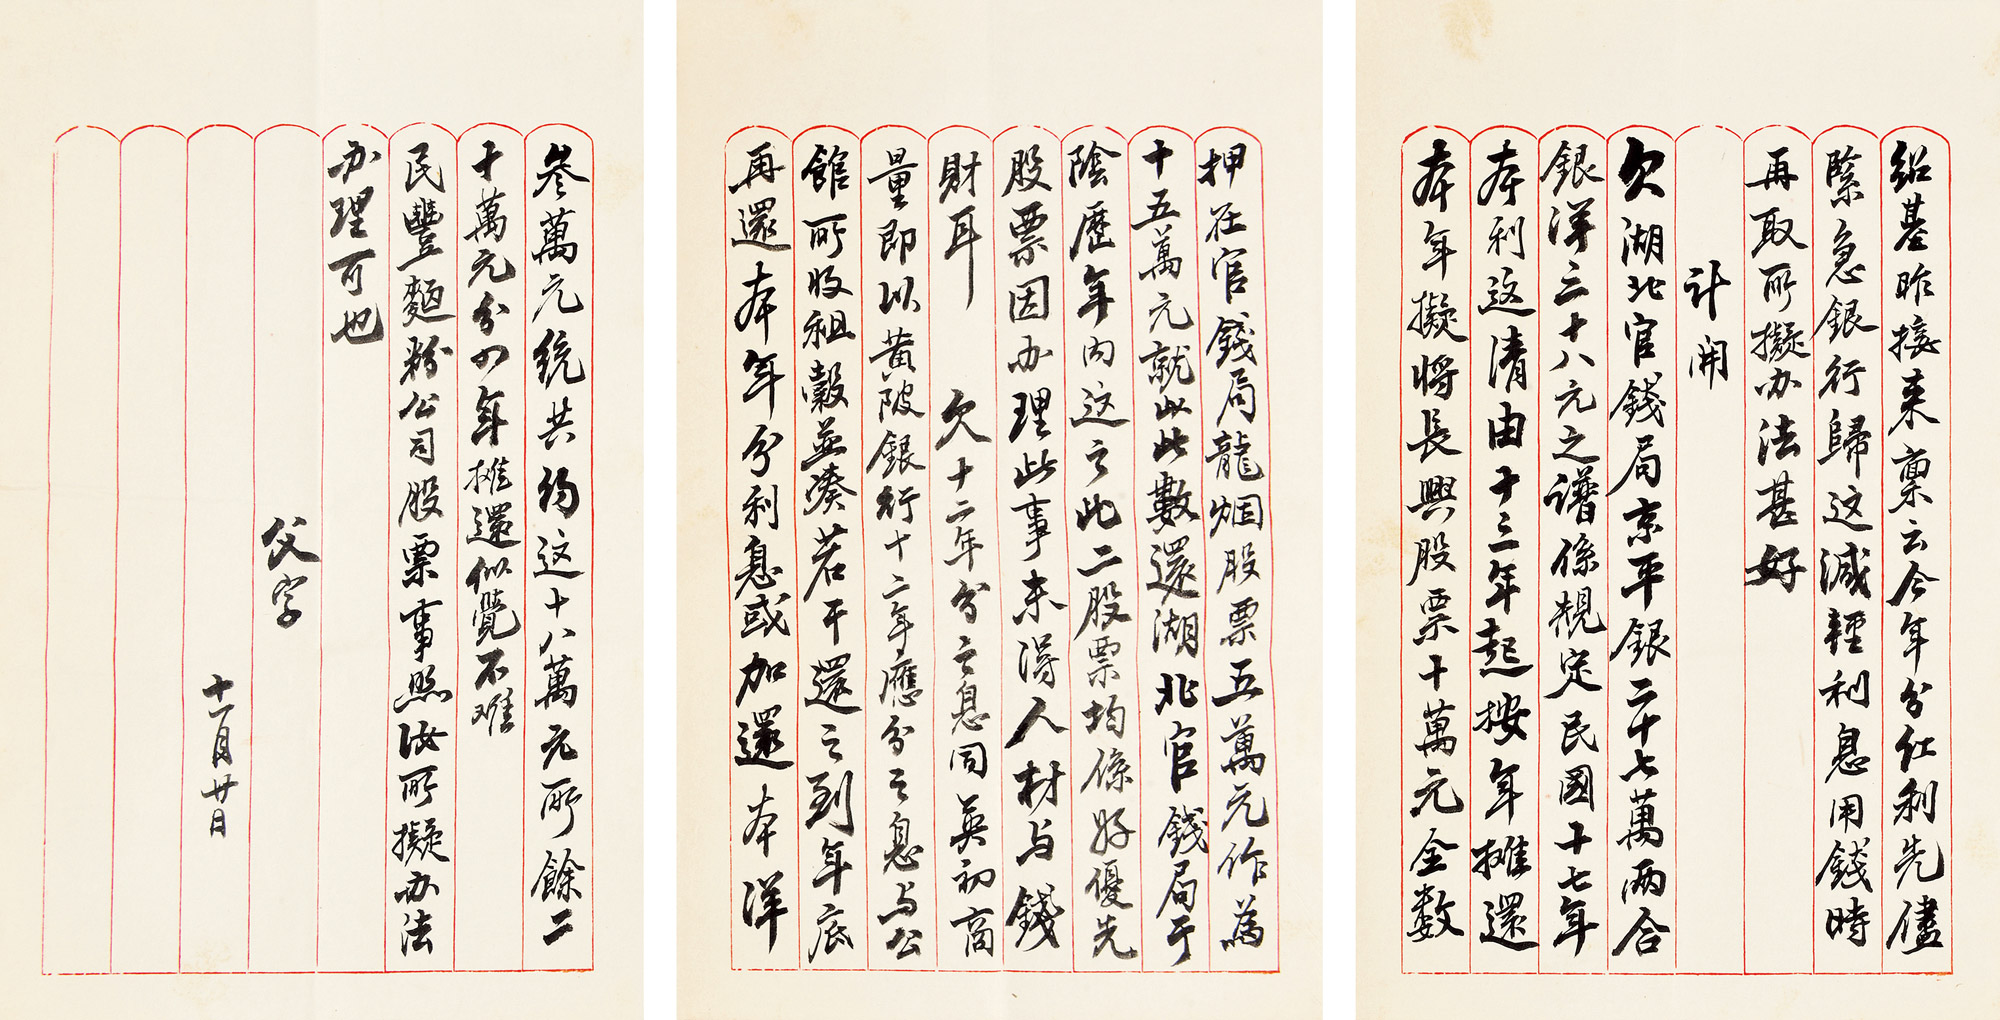 紹基昨接来稟云今年分红利先儘
緊急銀行歸还減輕利息用錢時
再取所擬办法甚好
計開
欠湖北官錢局京平銀二十七萬两合
銀洋三十八元之譜係規定民國十七年
本利还清由十三年起按年摊還
本年擬将長興股票十萬元全数
押在官錢局龍烟股票五萬元作為
十五萬元就此數還湖北官錢局于
陰歷年内还之此二股票均係好優先
股票因办理此事未得人材与錢
財耳 欠十二年分之息同英初商
量即以黄陂銀行十二年應分之息与公
館所收租穀並湊若干還之到年底
再還本年分利息或加還本洋
叁萬元統共約还十八萬元所餘二
十萬元分四年摊還似覺不难
民豐麵粉公司股票事照汝所擬办法
办理可也
父字
十一月廿日